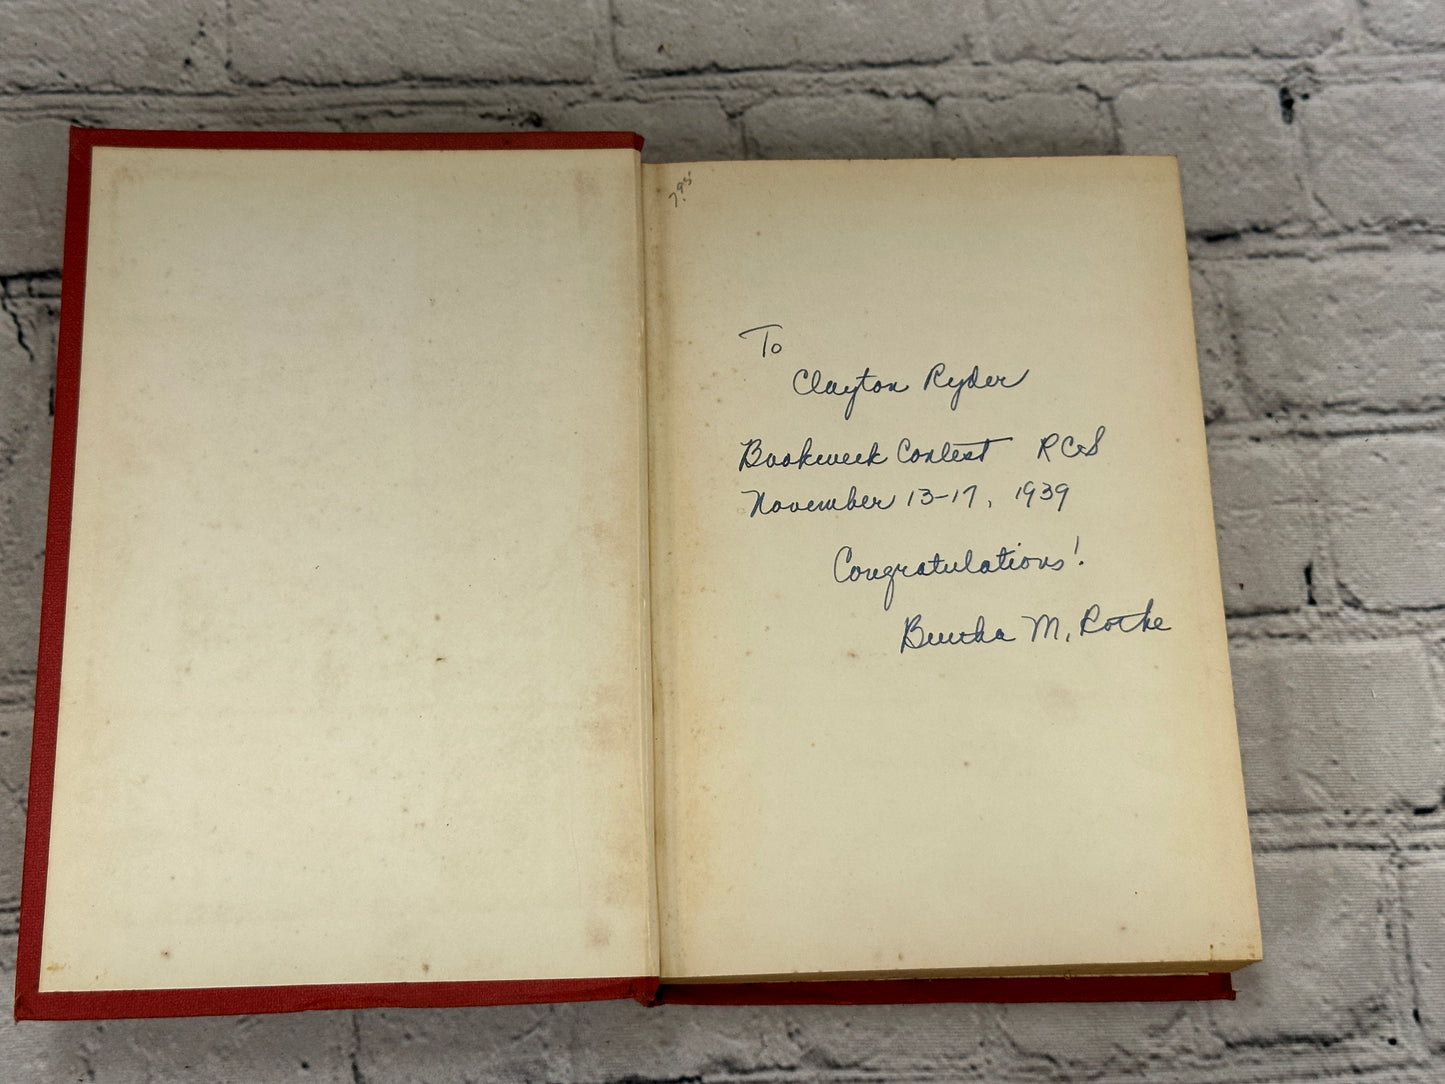 7.95
To
Clayton Ryder
Bookweek Contest RCS
November 13-17, 1939
Congratulations!
Bertha M. Rothe